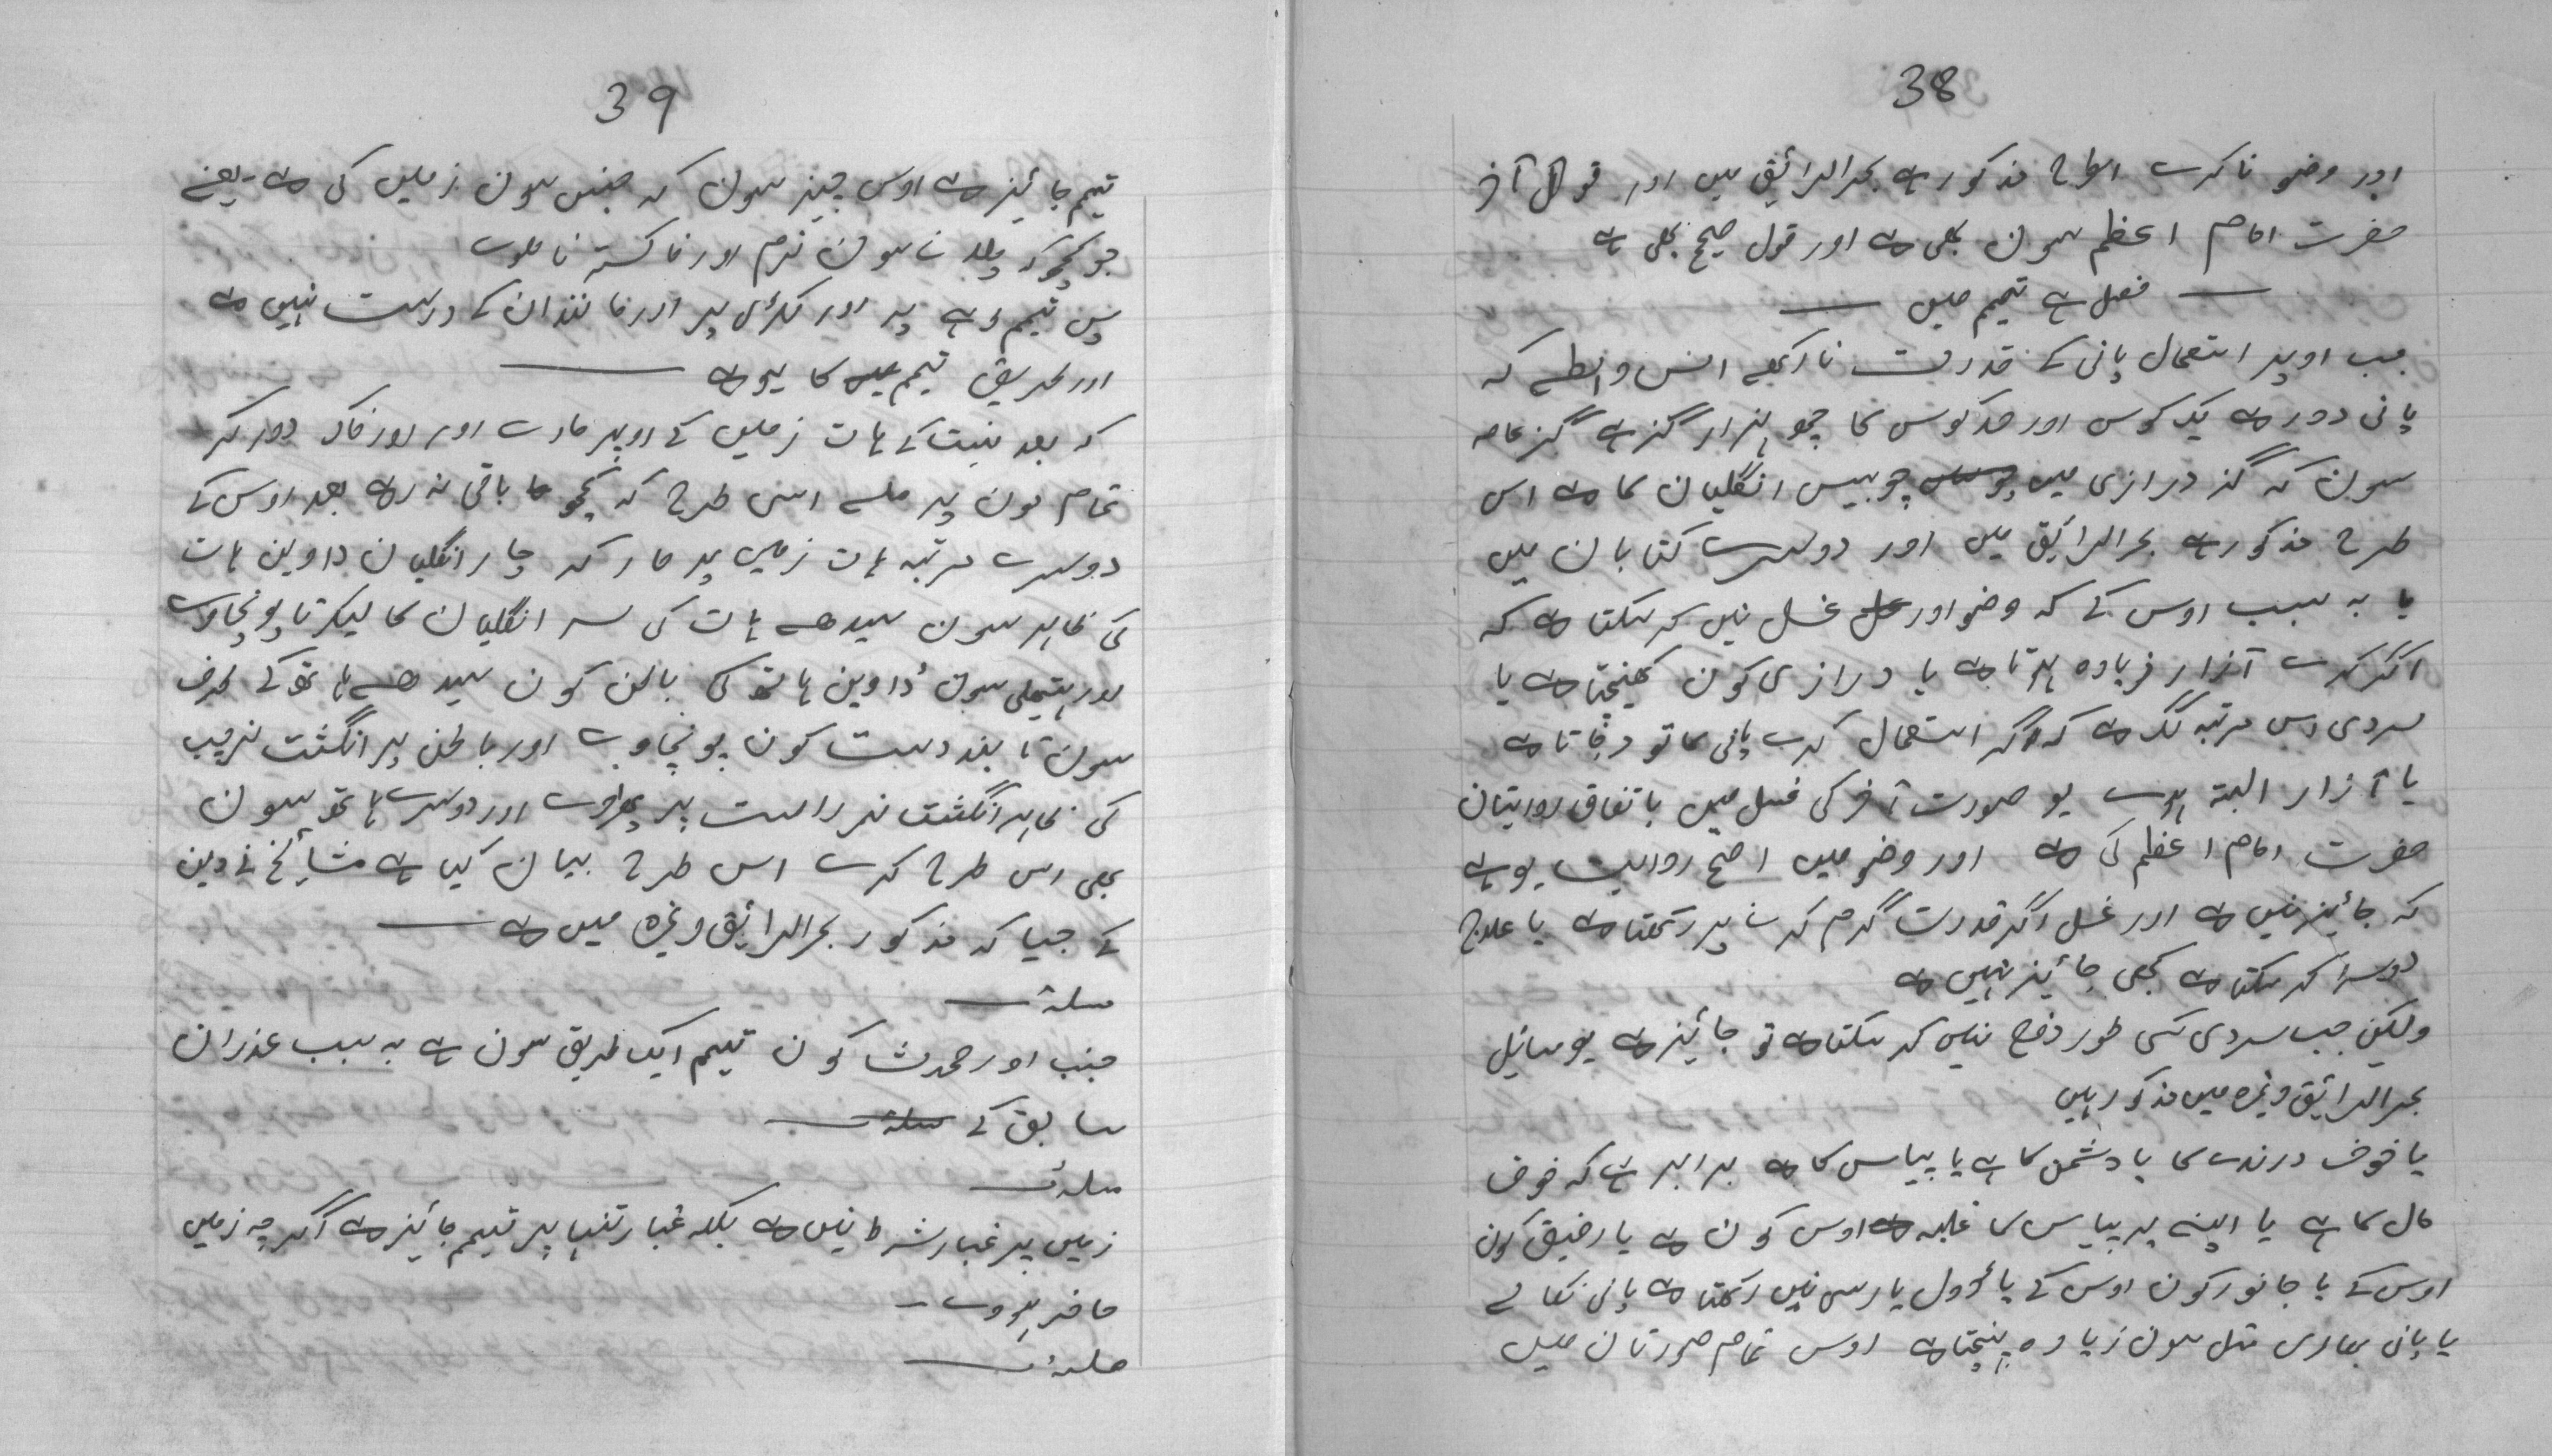 38
اور وضو نا کرے اسطرح مذکور ہے بحر الرائیق میں اور قول آخر
حضرت امام اعظم سون بھی ہے اور قول صحیح بھی ہے
فصل ہے تیمم میں
جب اوپر استعمال پانی کے قدرت نا رکھے اس واسطے کہ
پانی دور ہے یک کوس اور حد کوس کا چھو ہزار گز ہے گز عامہ
سون کہ گز درازی میں چوبیس انگلیان کا ہے اس
طرح مذکور ہے بحر الرائیق میں اور دوسرے کتابان میں
یا بہ سبب اوس کے کہ وضو اور غسل نیں کر سکتا ہے کہ
اگر کرے آزار زیادہ ہوتا ہے یا درازی کون کھینچتا ہے یا
سردی اس مرتبہ لگ ہے کہ اگر استعمال کرے پانی کا تو مرجاتا ہے
یا آزار البتہ ہوے یو صورت آخر کی غسل میں باتفاق روایتان
حضرت امام اعظم کی ہے اور وضو میں اصح روایت یو ہے
کہ جائیز نیں ہے اور غسل اگر قدرت گرم کرنے پر رکھتا ہے یا علاج
دوسرا کر سکتا ہے بھی جائیز نہیں ہے
ولیکن جب سردی کسی طور دفع نیں کر سکتا ہے تو جائیز ہے یو مسائیل
بحر الرائیق وغیرہ میں مذکور ہیں
یا خوف درندے کا یا دشمن کا ہے یا پیاس کا ہے برابر ہے کہ خوف
مال کا ہے یا اپنے پر پیاس کا غلبہ ہے اوس کون ہے یا رفیق کون
اوس کے یا جانور کون اوس کے یا ڈول یا رسی نیں رکھتا ہے پانی نکالے
یا پانی بھاری مثل سون زیادہ بیچتا ہے اوس تمام صورتان میں
39
تیمم جائیز ہے اوس چیز سون کہ جنس سون زمین کی ہے یعنے
جو کچھ کہ جلانے سون نرم اور خاکستر نا ہوے
پس تیمم پر اور لکڑی پر اور مانند ان کے درست نہیں ہے
اور طریق تیمم کا یو ہے
کہ بعد نیت کے ہات زمین کے اوپر مارے اور اور خاک دور کر
تمام مون پر ملے اسی طرح کہ کچھ باقی نہ رہے بعد اوس کے
دوسرے مرتبہ ہات زمین پر مار کر چار انگلیان داوین ہات
کی ظاہر سون سیدھے ہات کی سر انگلیان کا لیکر تا پونچاوے
اور ہتیلی سون ڈاوین ہاتھ کی باطن کون سیدھے ہاتھ کے طرف
سون تا بند دست کون پونچاوے اور باطن پر انگشت نرچپ
کی ظاہر انگشت نر راست پر پھراوے اور دوسرے ہاتھ سون
بھی اس طرح کرے اس طرح بیان کیا ہے مشائخ نے دین
کے جیا کہ مذکور بحر الرائیق وغیرہ میں ہے
مسلہ
جنب اور محدث کون تیمم ایک طریق سون ہے بہ سبب عذران
سابق کے مسلہ
مسلہ
زمین پر غبار شرط نیں ہے بلکہ غبار تنہا پر تیمم جائیز ہے اگرچہ زمین
حاضر ہووے
مسلہ